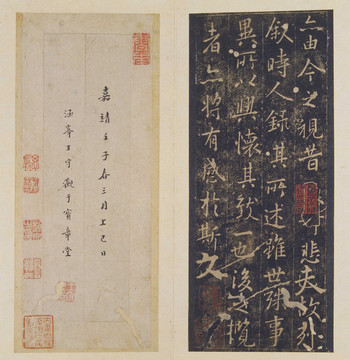 亦由今之視昔悲夫故列
叙時人錄其所述雖世殊事
異所以興懷其致一也後之攬
者亦將有感於斯文
嘉靖壬子春三月上巳日
涵峯王守觀于寳章堂